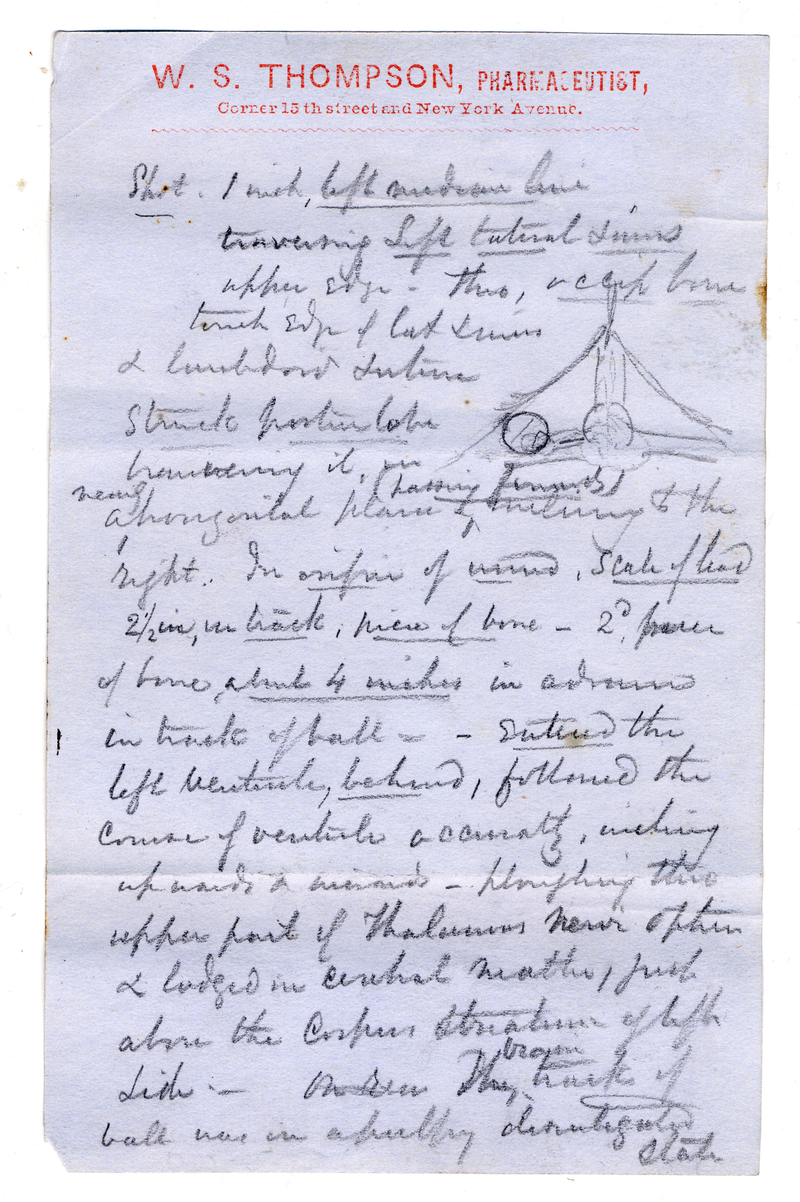 W. S. THOMPSON, PHARMACEUTIST,
Corner 15th street and New York Avenue.
Shot. 1 inch, left median line
traversing Left lateral sinus
upper Edge - thro, occip bone
touch Edge of lat sinus
& lambdoid suture
Struck posterior lobe
traversing it, in
nearly (passing forwards)
a horizontal plane & inclining to the
right. In orifice of wound, scale of lead
2 1/2 in, in track, piece of bone – 2d, piece
of bone, about 4 inches in advance
in track of ball – – Entered the
left ventricle, behind, followed the
course of ventricle accurately, inclining
upwards & inwards – ploughing thro
upper part of Thalamus Nervi Optici
& lodged in cerebral matter, just
above the Corpus striatum of left
side –
brain
track of
ball was in a pulpy disintegrated
state